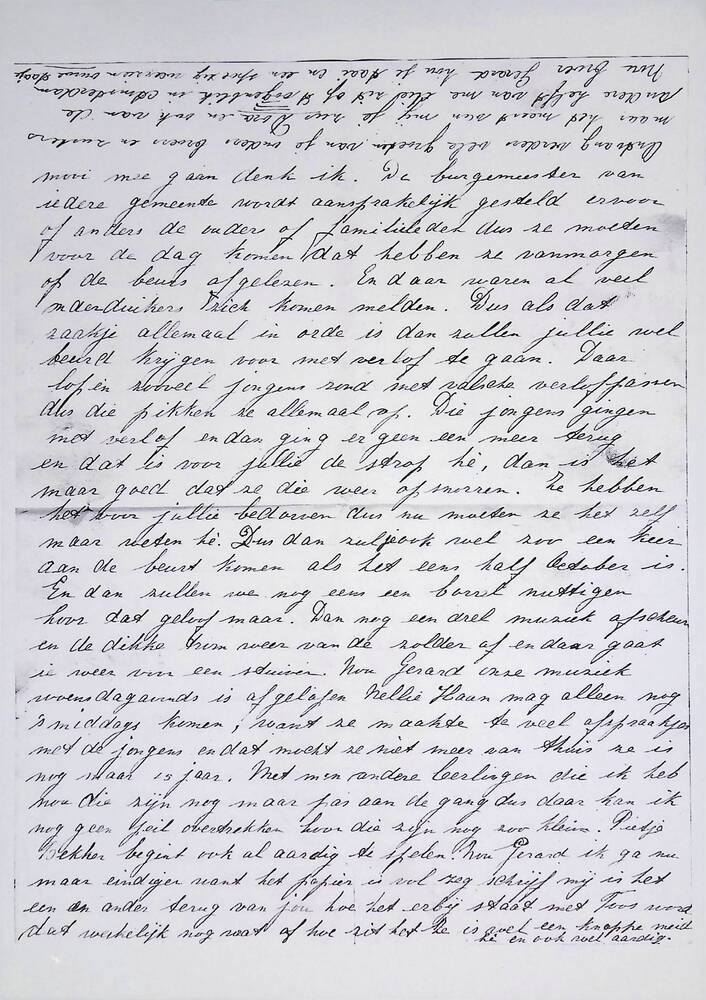 mooi mee gaan denk ik. De burgemeester van
iedere gemeente wordt aansprakelijk gesteld ervoor
of anders de ouders of familieleden dus ze moeten
voor de dag komen dat hebben ze vanmorgen
op de beurs afgelezen. En daar waren al veel
onderduikers zich komen melden. Dus als dat
zaakje allemaal in orde is dan zullen jullie wel
beurd krijgen voor met verlof te gaan. Daar
lopen zooveel jongens rond met valsche verlofpassen
dus die pikken ze allemaal op. Die jongens gingen
met verlof en dan ging er geen een meer terug
en dat is voor jullie de strop hè, dan is het
maar goed dat ze die weer opsnorren. Ze hebben
het voor jullie bedorven dus nu moeten ze het zelf
maar weten hè. Dus dan zal ook wel zoo een keer
aan de beurt komen als het eens half October is.
En dan zullen we nog eens een borrel nuttigen
hoor dat geloof maar. Dan nog een drel muziek afscheur
en de dikke trom weer van de zolder af en daar gaat
ie weer voor een stuiver. Nou Gerard onze muziek
woensdagavonds is afgelopen Nellie Haan mag alleen nog
's middags komen, want ze maakte te veel afspraakjes
met de jongens en dat mocht ze niet meer van thuis ze is
nog maar 15 jaar. Met mijn andere leerlingen die ik heb
nou die zijn nog maar pas aan de gang dus daar kan ik
nog geen peil overtrekken hoor die zijn nog zoo klein. Pietje
Bekker begint ook al aardig te spelen. Nou Gerard ik ga nu
maar eindigen want het papier is vol zeg schrijf mij is het
een en ander terug van jou hoe het erbij staat met Toos word
dat werkelijk nog wat of hoe zit het ze is wel een knappe meid
hè en ook wel aardig.
Ontvang verders vele groeten van je ouders broers en zusters
maar het meest van mij je zus Dora en ook van de
andere helft van me die zit op 't oogenblik in Amsterdam
Nou broer Gerard hou je taai en een spoedig weerzien onze